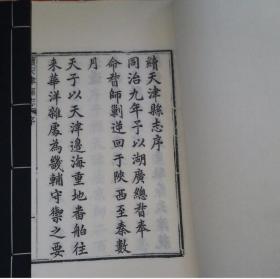 續天津縣志序
同治九年予以湖廣總督奉
命督師剿逆回于陝西至秦數
月
天子以天津邊海重地番舶往
來華洋雜處為畿輔守禦之要